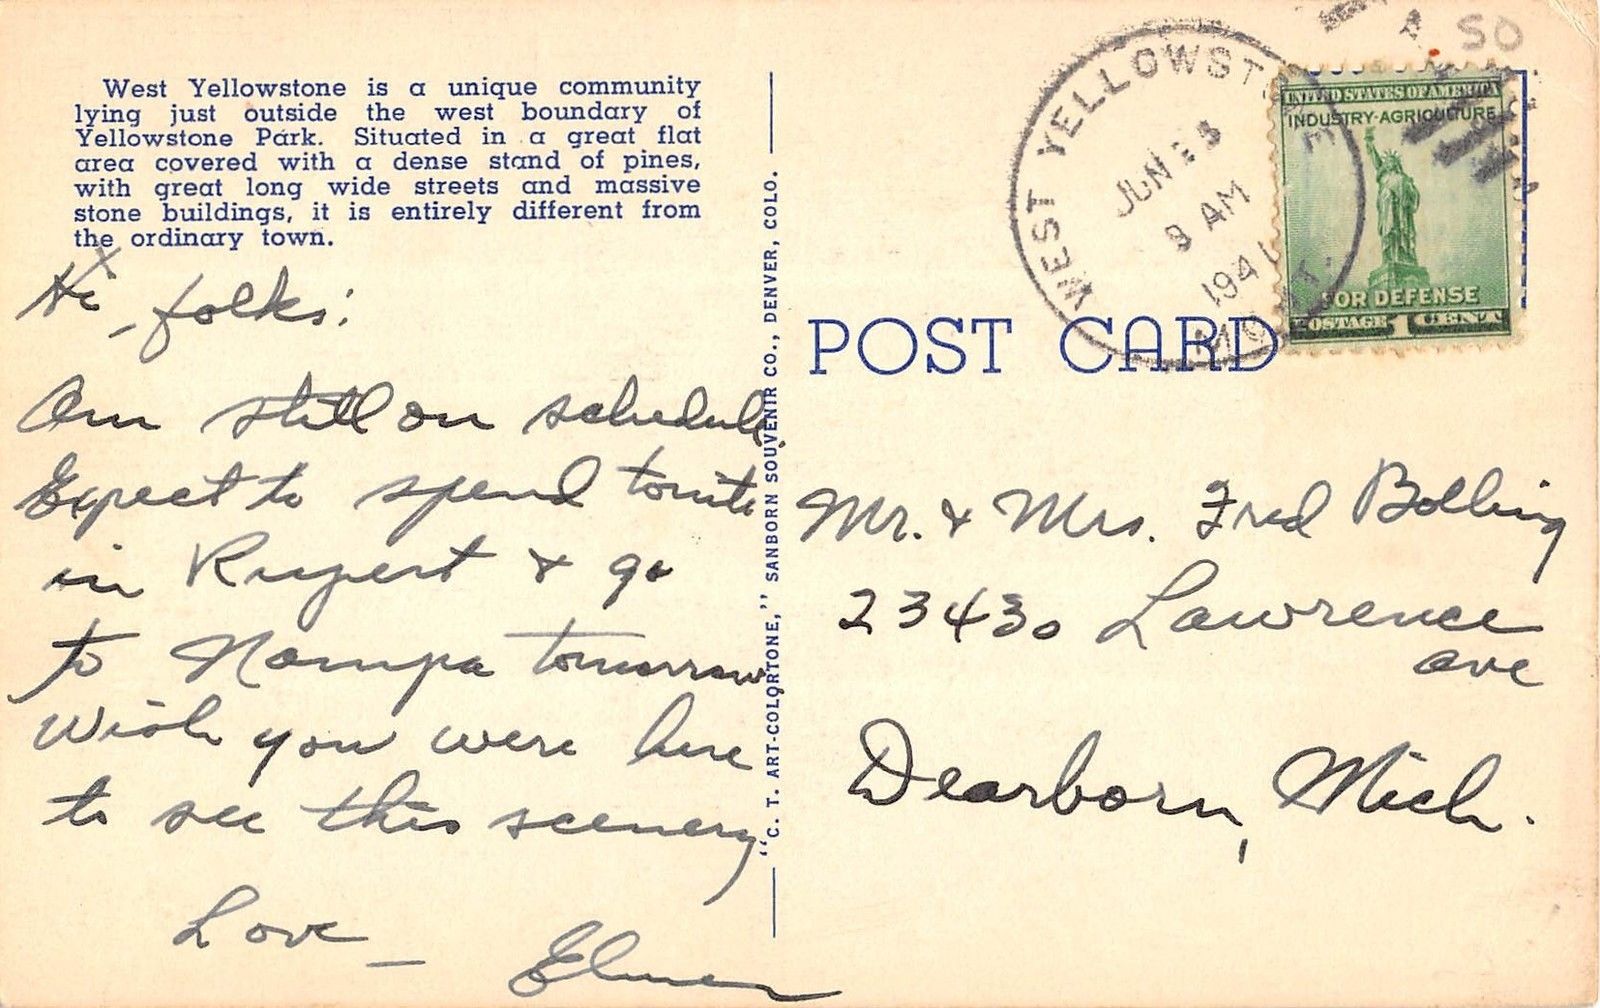 West Yellowstone is a unique community
lying just outside the west boundary of
Yellowstone Park. Situated in a great flat
area covered with a dense stand of pines,
with great long wide streets and massive
stone buildings, it is entirely different from
the ordinary town.
Hi folks:
Am still on schedule.
Expect to spend tonite
in Rupert & go
to Nampa tomorrow,
Wish you were here
to see this scenery
Love —
Elmer
"C. T. ART-COLORTONE," SANBORN SOUVENIR CO., DENVER, COLO.
50
WEST YELLOWSTONE
JUN
AM
1941
MONT.
UNITED STATES OF AMERICA
INDUSTRY-AGRICULTURE
FOR DEFENSE
POSTAGE 1 CENT
POST CARD
Mr. & Mrs. Fred Bolling
23430 Lawrence
ave
Dearborn, Mich.